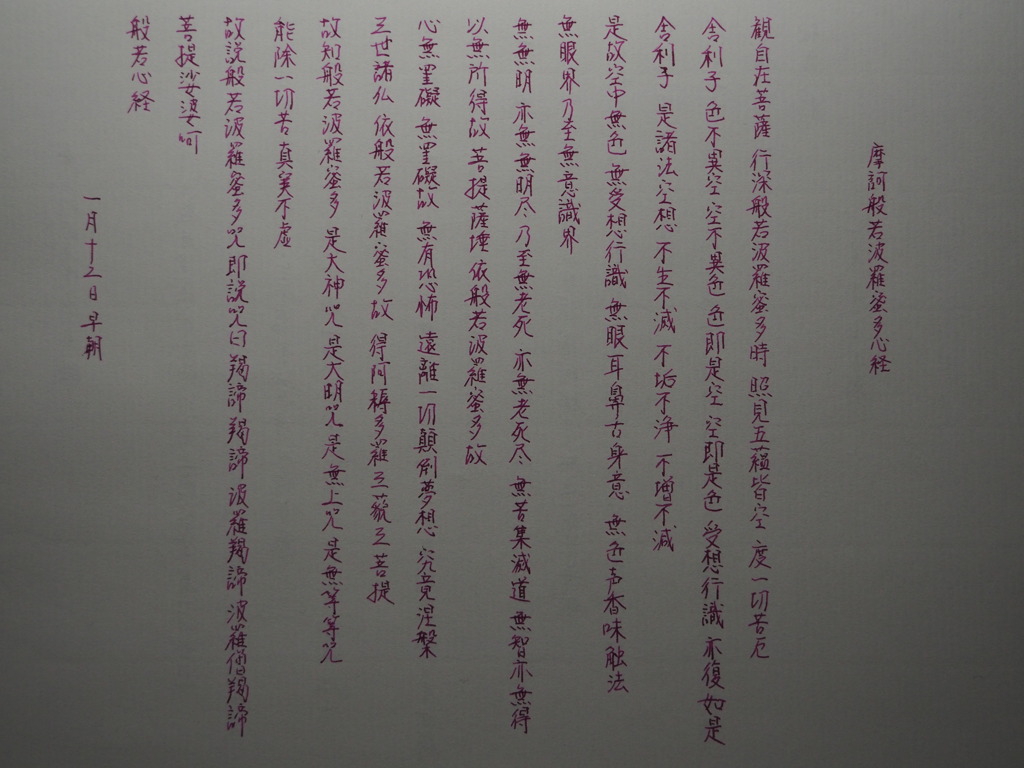 摩訶般若波羅蜜多心経
観自在菩薩 行深般若波羅蜜多時 照見五蘊皆空 度一切苦厄
舎利子 色不異空 空不異色 色即是空 空即是色 受想行識 亦復如是
舎利子 是諸法空想 不生不滅 不垢不浄 不増不減
是故空中無色 無受想行識 無眼耳鼻舌身意 無色声香味触法
無眼界乃至無意識界
無無明 亦無無明尽 乃至無老死 亦無老死尽 無苦集滅道 無智亦無得
以無所得故 菩提薩埵 依般若波羅蜜多故
心無罣礙 無罣礙故 無有恐怖 遠離一切顛倒夢想 究竟涅槃
三世諸仏 依般若波羅蜜多故 得阿耨多羅三藐三菩提
故知般若波羅蜜多 是大神呪 是大明呪 是無上呪 是無等等呪
能除一切苦 真実不虚
故説般若波羅蜜多呪 即説呪曰 羯諦 羯諦 波羅羯諦 波羅僧羯諦
菩提沙婆呵
般若心経
一月十三日 早朝